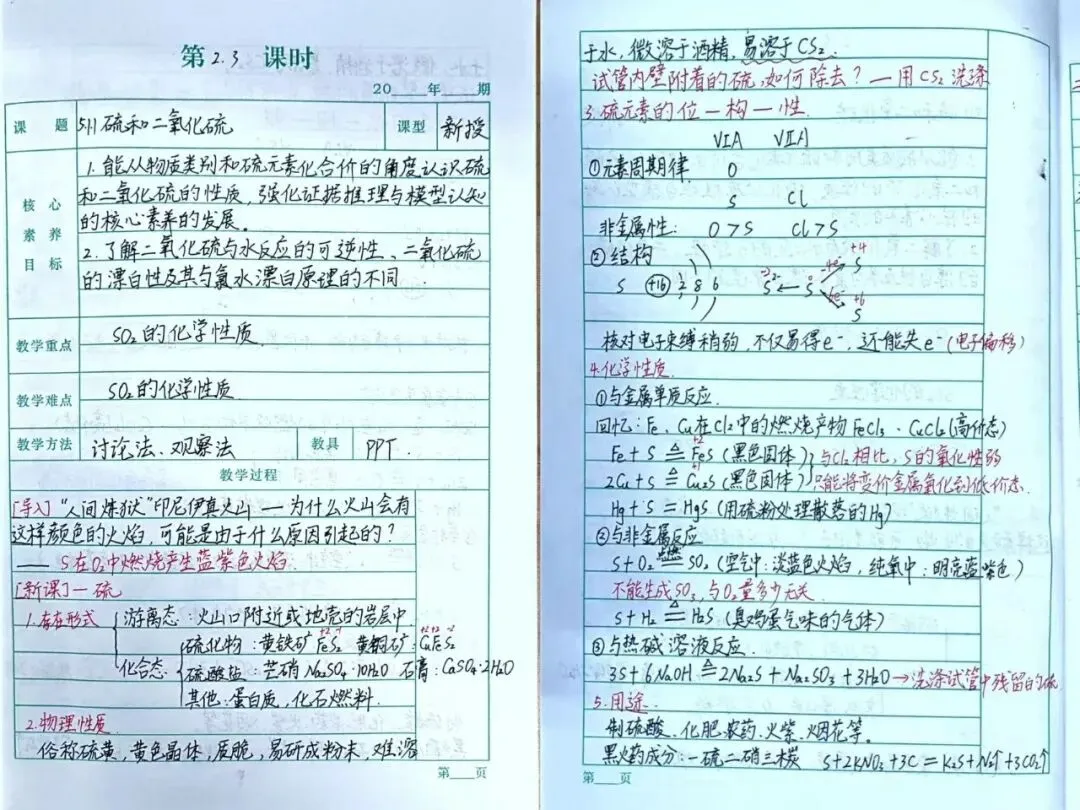 第2.3课时
20 年 期
课题 5.1.1 硫和二氧化硫 课型 新授
核心素养目标
1.能从物质类别和硫元素化合价的角度认识硫
和二氧化硫的性质,强化证据推理与模型认知
的核心素养的发展。
2.了解二氧化硫与水反应的可逆性、二氧化硫
的漂白性及其与氯水漂白原理的不同.
教学重点 SO₂的化学性质.
教学难点 SO₂的化学性质
教学方法 讨论法、观察法 教具 PPT.
教学过程
[导入]“人间炼狱”印尼伊真火山——为什么火山会有
这样颜色的火焰,可能是由于什么原因引起的?
—— S在O₂中燃烧产生蓝紫色火焰.
[新课]一.硫
1.存在形式 游离态:火山口附近或地壳的岩层中
化合态: 硫化物:黄铁矿 FeS₂ 黄铜矿:CuFeS₂
硫酸盐:芒硝 Na₂SO₄·10H₂O 石膏:CaSO₄·2H₂O
其他:蛋白质,化石燃料.
2.物理性质
俗称硫黄,黄色晶体,质脆,易研成粉末,难溶
第 页
于水,微溶于酒精,易溶于CS₂.
试管内壁附着的硫,如何除去?—用CS₂洗涤
3.硫元素的位—构—性.
ⅥA ⅦA
①元素周期律 O
S Cl
非金属性: O>S Cl>S
②结构
S +16 2 8 6 -2 S²⁻ ← 0 S -4e⁻ → +4 S
-6e⁻ → +6 S
核对电子束缚稍弱,不仅易得e⁻,还能失e⁻(电子偏移)
4.化学性质
①与金属单质反应.
回忆:Fe、Cu在Cl₂中的燃烧产物 FeCl₃、CuCl₂(高价态)
Fe+S ≜ FeS(黑色固体) 与Cl₂相比,S的氧化性弱
2Cu+S ≜ Cu₂S(黑色固体) 只能将变价金属氧化到低价态.
Hg+S=HgS(用硫粉处理散落的Hg)
②与非金属反应
S+O₂ 点燃= SO₂(空气中:淡蓝色火焰,纯氧中:明亮蓝紫色)
不能生成SO₃,与O₂量多少无关.
S+H₂ ≜ H₂S(臭鸡蛋气味的气体)
③与热碱溶液反应.
3S+6NaOH ≜ 2Na₂S+Na₂SO₃+3H₂O → 洗涤试管中残留的硫
5.用途.
制硫酸、化肥、农药、火柴、烟花等。
黑火药成分:一硫二硝三木炭 S+2KNO₃+3C=K₂S+N₂↑+3CO₂↑
第 页